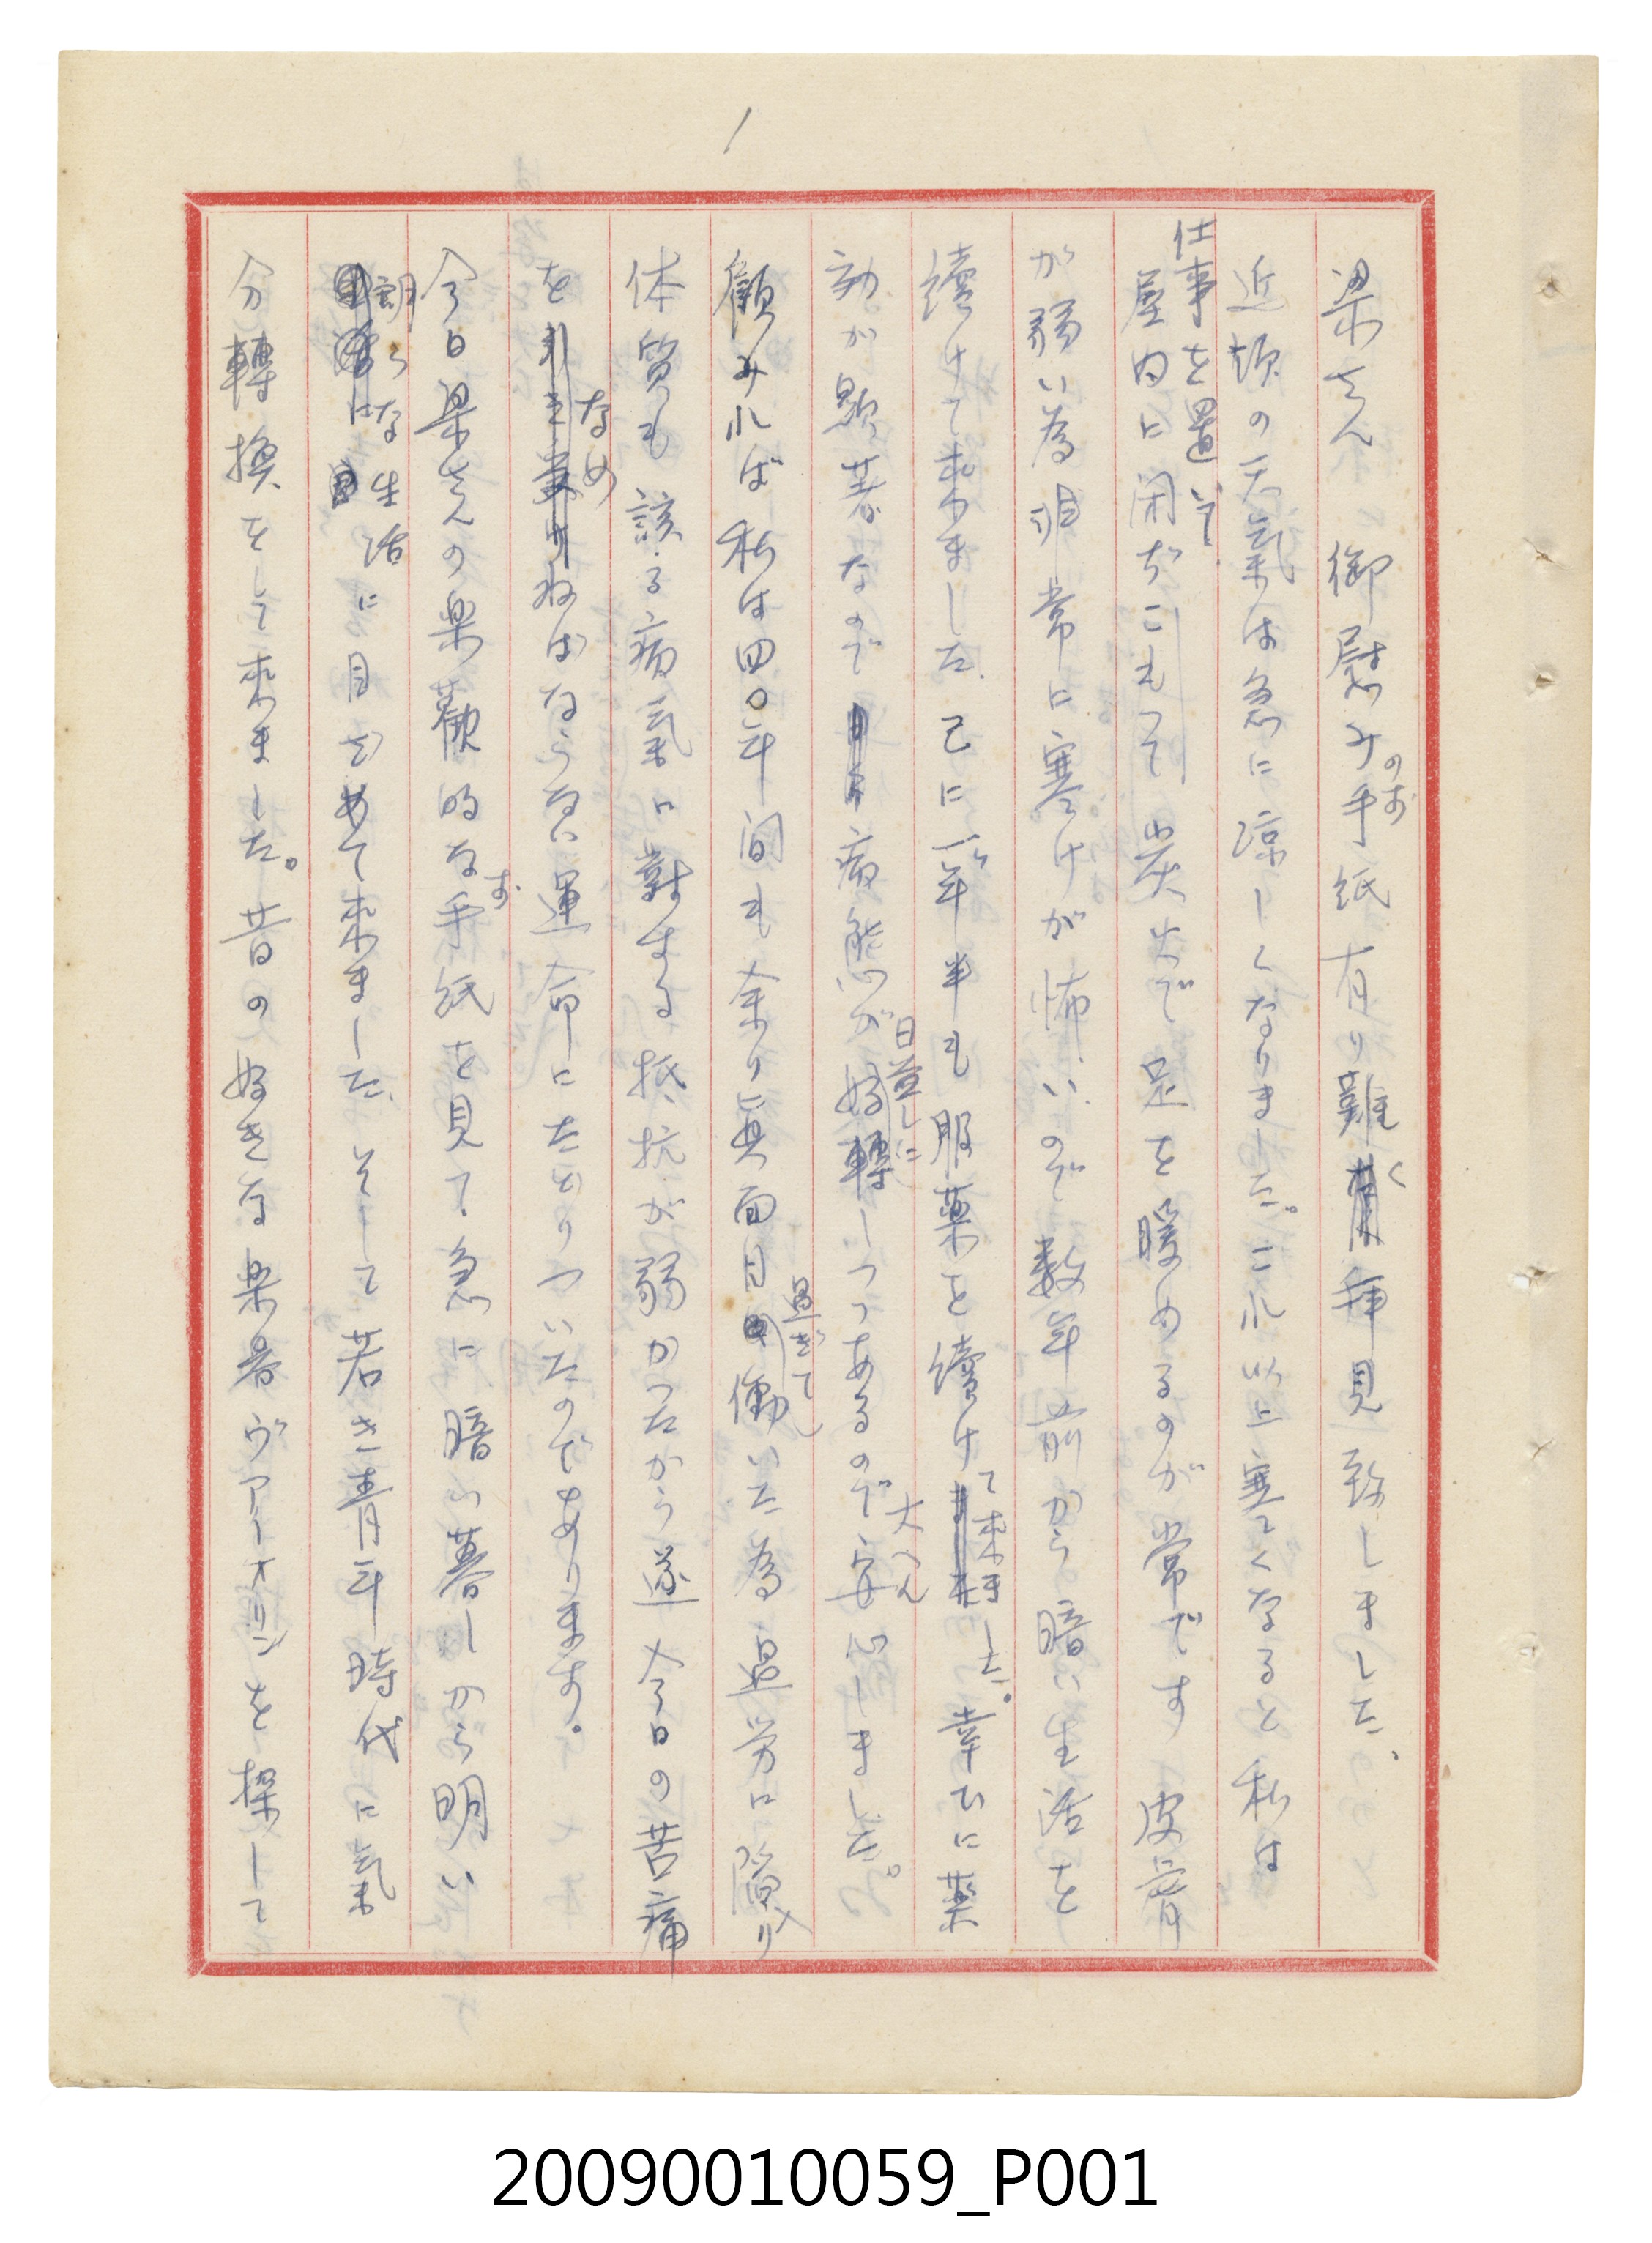 1
梁さん 御慰みのお手紙有り難く拝見致しました、
近頃の天氣は急に涼しくなりました。これ以上寒くなると私は
仕事を置いて
屋内に閉ぢこもって炭火で足を暖めるのが常です 皮膚
が弱い為非常に寒けが怖いので数年前から暗い生活を
續けて来ました 已に一年半も服薬を續けて来ました。幸ひに薬
効が顕著なので病態が日益しに好轉しつつあるので大へん安心しました。
顧みれば私は四〇年間も余り眞面目過ぎて働いた為過労に陥り
体質も該る病氣に對する抵抗が弱かったから遂今日の苦痛
をなめねばならない運命にたどりついたのであります。
今日梁さんの楽観的なお手紙を見て急に暗い暮しから明い
朗らな生活に目ざめて来ました、そして若き青年時代に氣
分轉換をして来ました。昔の好きな楽器ヴァイオリンを探して
20090010059_P001